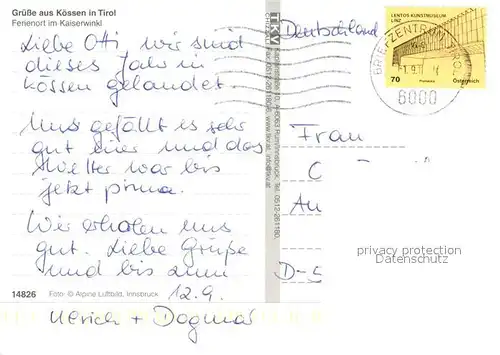 Grüße aus Kössen in Tirol
Ferienort im Kaiserwinkl
Liebe Otti wir sind
dieses Jahr in
kössen gelandet.
Uns gefällt es sehr
gut hier und das
Wetter war bis
jetzt prima.
Wir erholen uns
gut. Liebe Grüße
und bis zum
12.9.
Ulrich + Dagmar
14826 Foto: © Alpine Luftbild, Innsbruck
TKV
6063 Rum/Innsbruck, Tel. 0512-261180,
Deutschland
LENTOS KUNSTMUSEUM
LINZ
70 Österreich
BRIEFZENTRUM TIROL
6000
Frau
D-5
privacy protection
Datenschutz